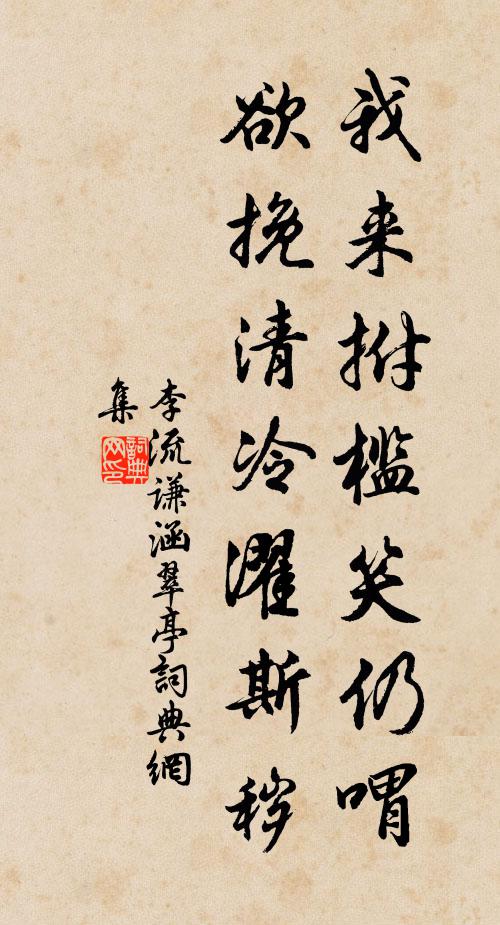 我来拊槛笑仍喟
欲挽清冷濯斯秽
李流谦涵翠亭詞典網
集
詞典网印